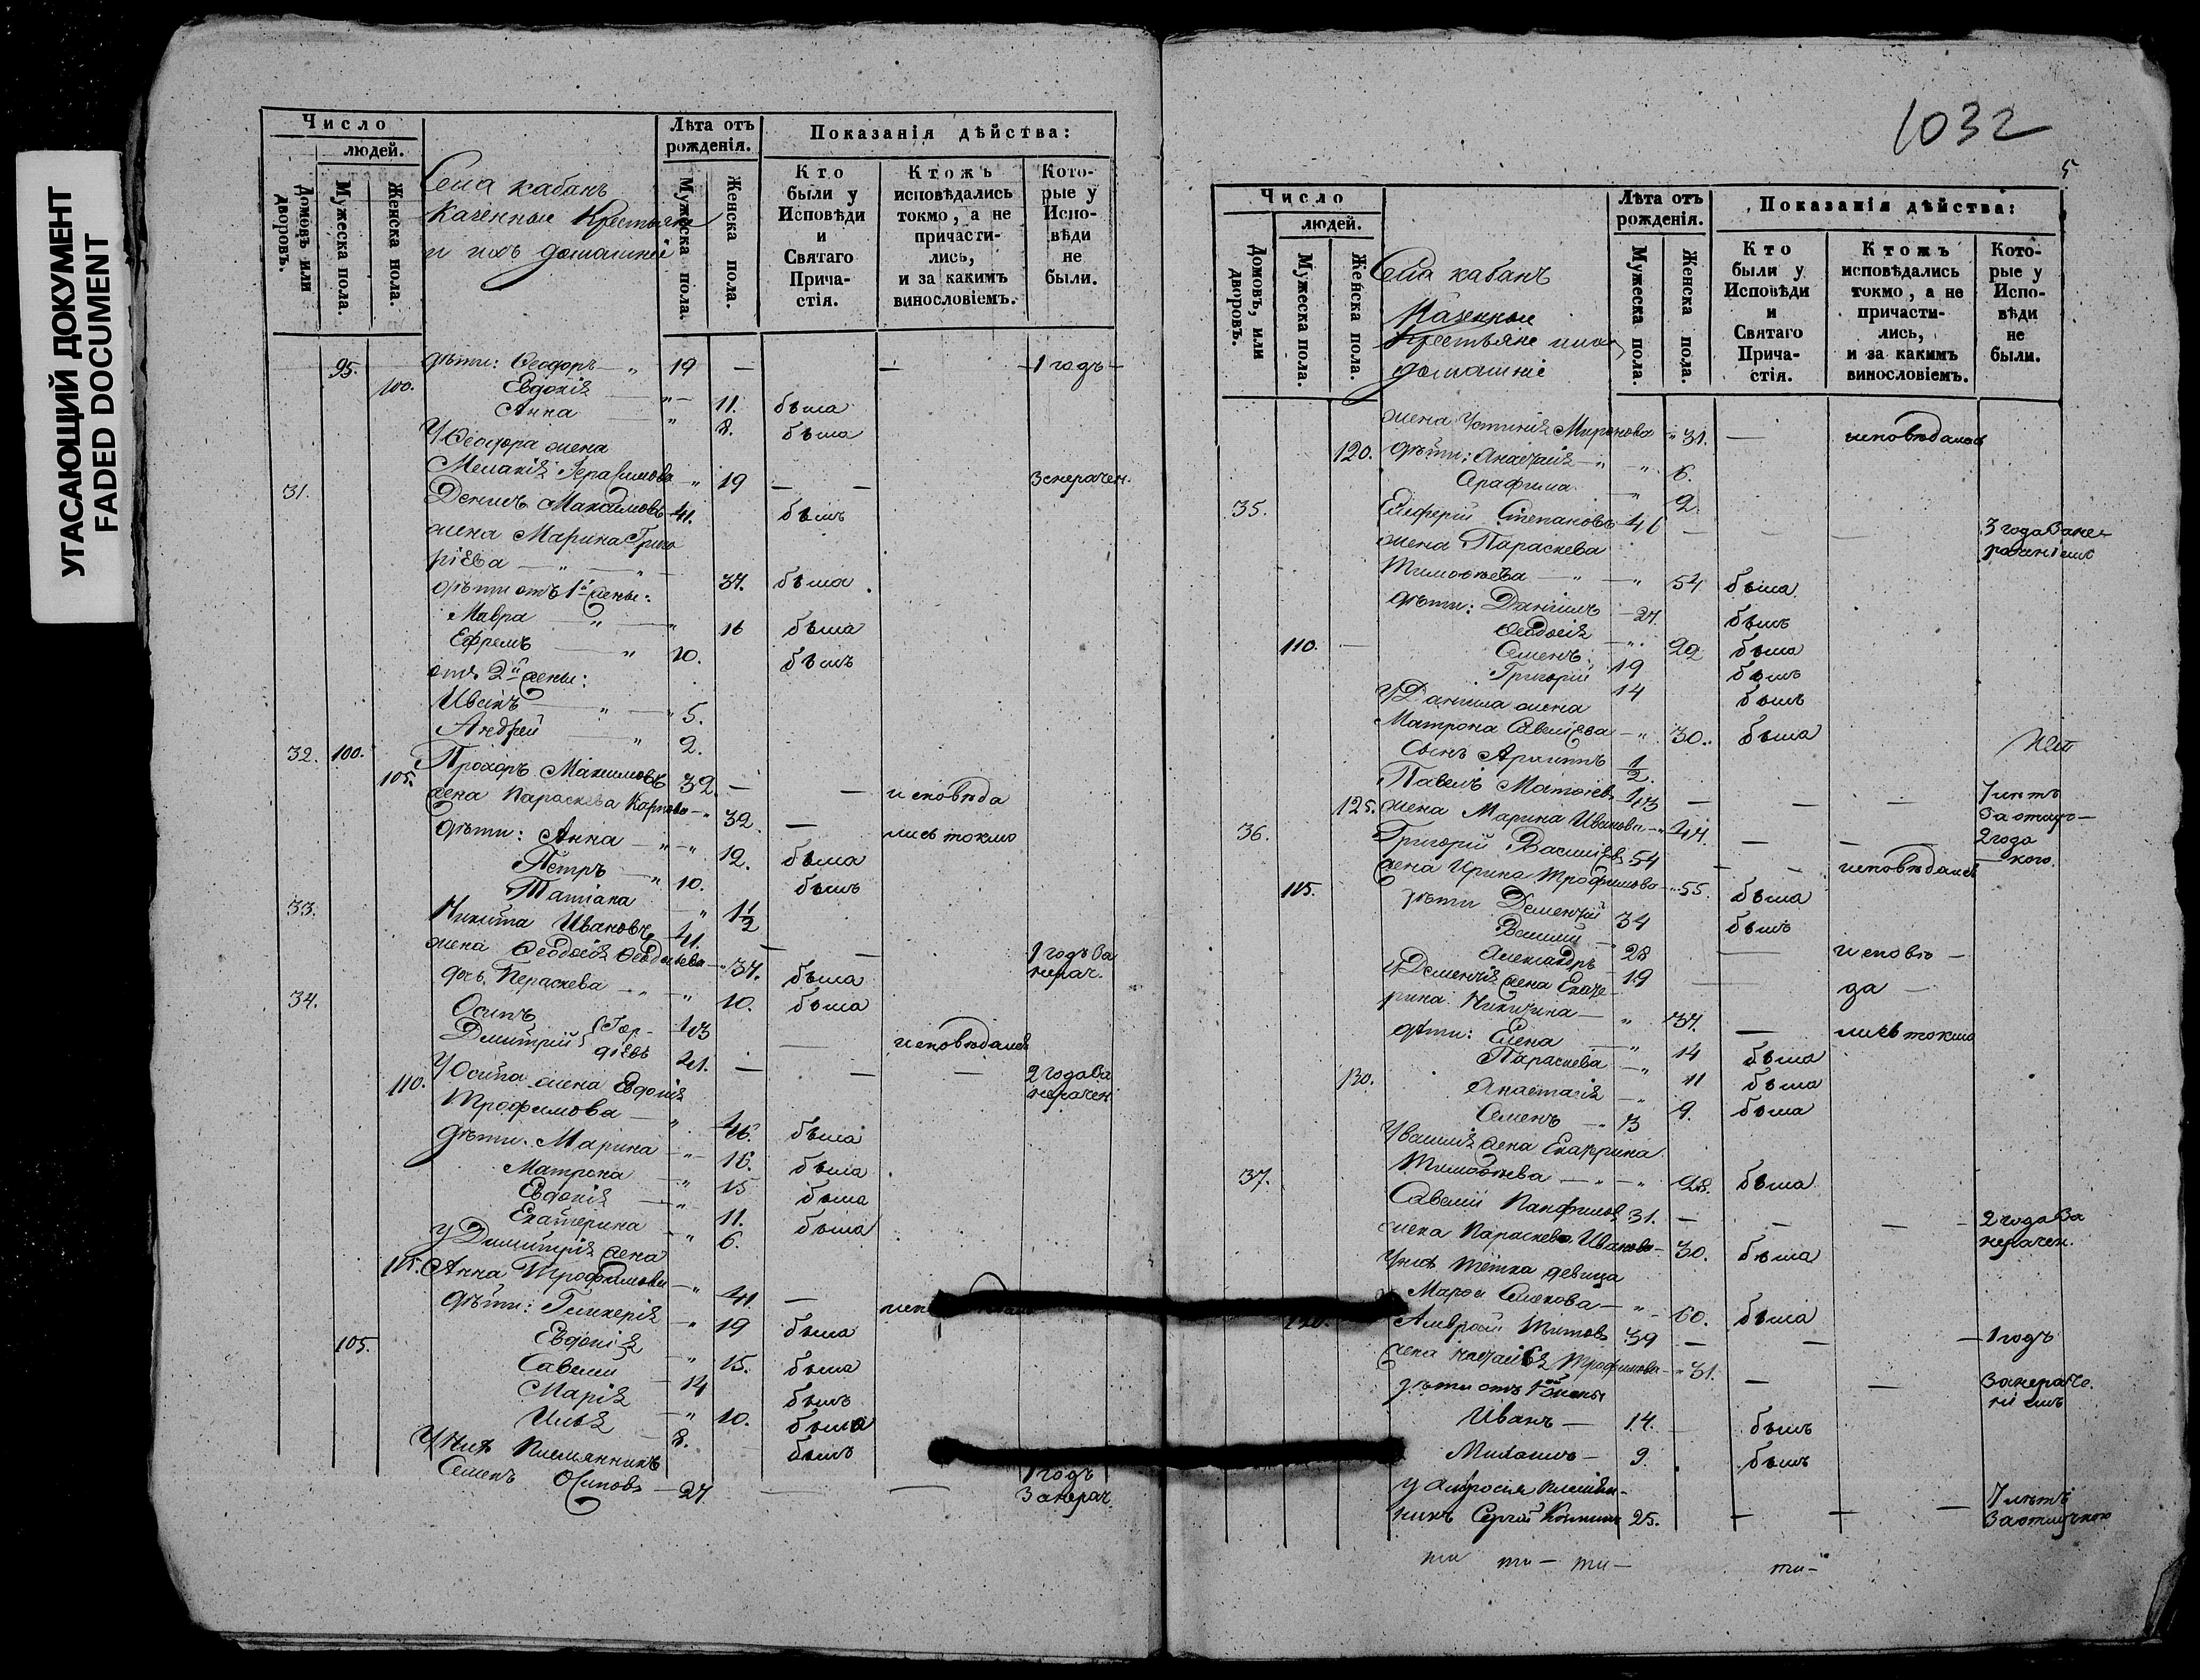 УГАСАЮЩИЙ ДОКУМЕНТ
FADED DOCUMENT
Число
людей.
Домовъ или дворовъ.
Мужеска пола
Женска пола.
Села кабанъ
Казенные Крестьяне
и ихъ домашніе
Лѣта отъ рожденія.
Мужеска пола.
Женска пола.
Показанія дѣйства:
Кто были у Исповѣди и Святаго Причастія.
Ктожъ исповѣдались токмо, а не причастились, и за какимъ винословіемъ.
Которые у Исповѣди не были.
95. дѣти: Ѳеодоръ — " 19 — — 1 годъ —
100. Евдокія — " — 11. была
Анна — " 8. была
У Ѳеодора жена
Меланія Герасимова — " 19 — — З а нерачен.
31. Денисъ Максимовъ 41. былъ
жена Марина Григо
ріева — " — " — 37. была
дѣти отъ 1й жены:
Мавра — " — " 16 была
Ефремъ — " 10. былъ
отъ 2й жены:
Иванъ — " — " 5.
Андрей — " 2.
32. 100. Прохоръ Максимовъ 32. — — исповѣда
105. жена Параскева Карпова — " 32. — лись токмо
дѣти: Анна — " — " 12. была
Петръ — " 10. былъ
Татіана — " 1½
33. Никита Ивановъ 41. — — 1 годъ за
жена Ѳеодосія Ѳеодосьева — " 37. была нерач.
дочь Пераскева — " — " 10. была
34. Осипъ
Димитрій } Гор-
дѣевъ 43 — исповѣдался
41. — — — 2 года за
110. У Осипа жена Евдокія нерачен.
Трофимова — " 46. была
дѣти. Марина — " 16. была
Матрона — " 15 была
Евдокія — " 11. была
Екатерина — " 6. была
у Димитрія жена
115. Анна Трофимова — " 41. —
дѣти: Гликерія — " 19 была
Евдокія — " 15. была
105. Савелій 14 былъ
Марія — " 10. была
Илья 8. былъ
У нихъ племянникъ 1 годъ
Семенъ Осиповъ — 27 — — За нерач.
1032
5
Число
людей.
Домовъ, или дворовъ.
Мужеска пола.
Женска пола.
Села кабанъ
Казенные
Крестьяне и ихъ
домашніе
Лѣта отъ рожденія.
Мужеска пола.
Женска пола.
Показанія дѣйства:
Кто были у Исповѣди и Святаго Причастія.
Ктожъ исповѣдались токмо, а не причастились, и за какимъ винословіемъ.
Которые у Исповѣди не были.
жена Устинія Миронова — " 31. — исповѣдалась
120. дѣти: Анастасія — " — " 6.
— " 2
35. Елеферій Степановъ 46 — — — 3 года за не-
жена Параскева раченіемъ
Тимоѳеева — " — " 54 была
дѣти: Даніилъ — 27. былъ
Ѳеодосія — " 22 была
110. — Семенъ 19 былъ
Григорій 14 былъ
у Даніила жена
Матрона Савельева — " 30. была
Сынъ ½
Павелъ 43 — — — 7 лѣтъ
125. жена Марина Иванова — " 44. — — 2 года
36. Григорій Васильевъ 54 — — исповѣдался
жена Ирина Трофимова — " 55. была
115. дѣти Дементій 34 былъ
Василій — 28 — исповѣ —
Александръ 19 — да —
у Дементія жена Екате-
рина Никитина — " 37. — лись токмо
дѣти: Елена — " 14 была
Параскева — " 11 была
130. Анастасія — " 9. была
Семенъ — " 3
У Василія жена Екатерина
Тимоѳеева — " — " 28. была
37. Савелій Панфиловъ 31. — — — 2 года за
жена Параскева Иванова — 30. была нерачен.
У нихъ тётка девица
Семенова — " 60. была
120. Титовъ 39 — — — 1 годъ
жена Трофимова — " 31. — — За нераче-
дѣти отъ 1ой жены ніемъ
Иванъ — 14. былъ
Михаилъ — 9. былъ
у Амвросія племян- 7 лѣтъ
никъ Сергѣй 25. — — — За отлучкою